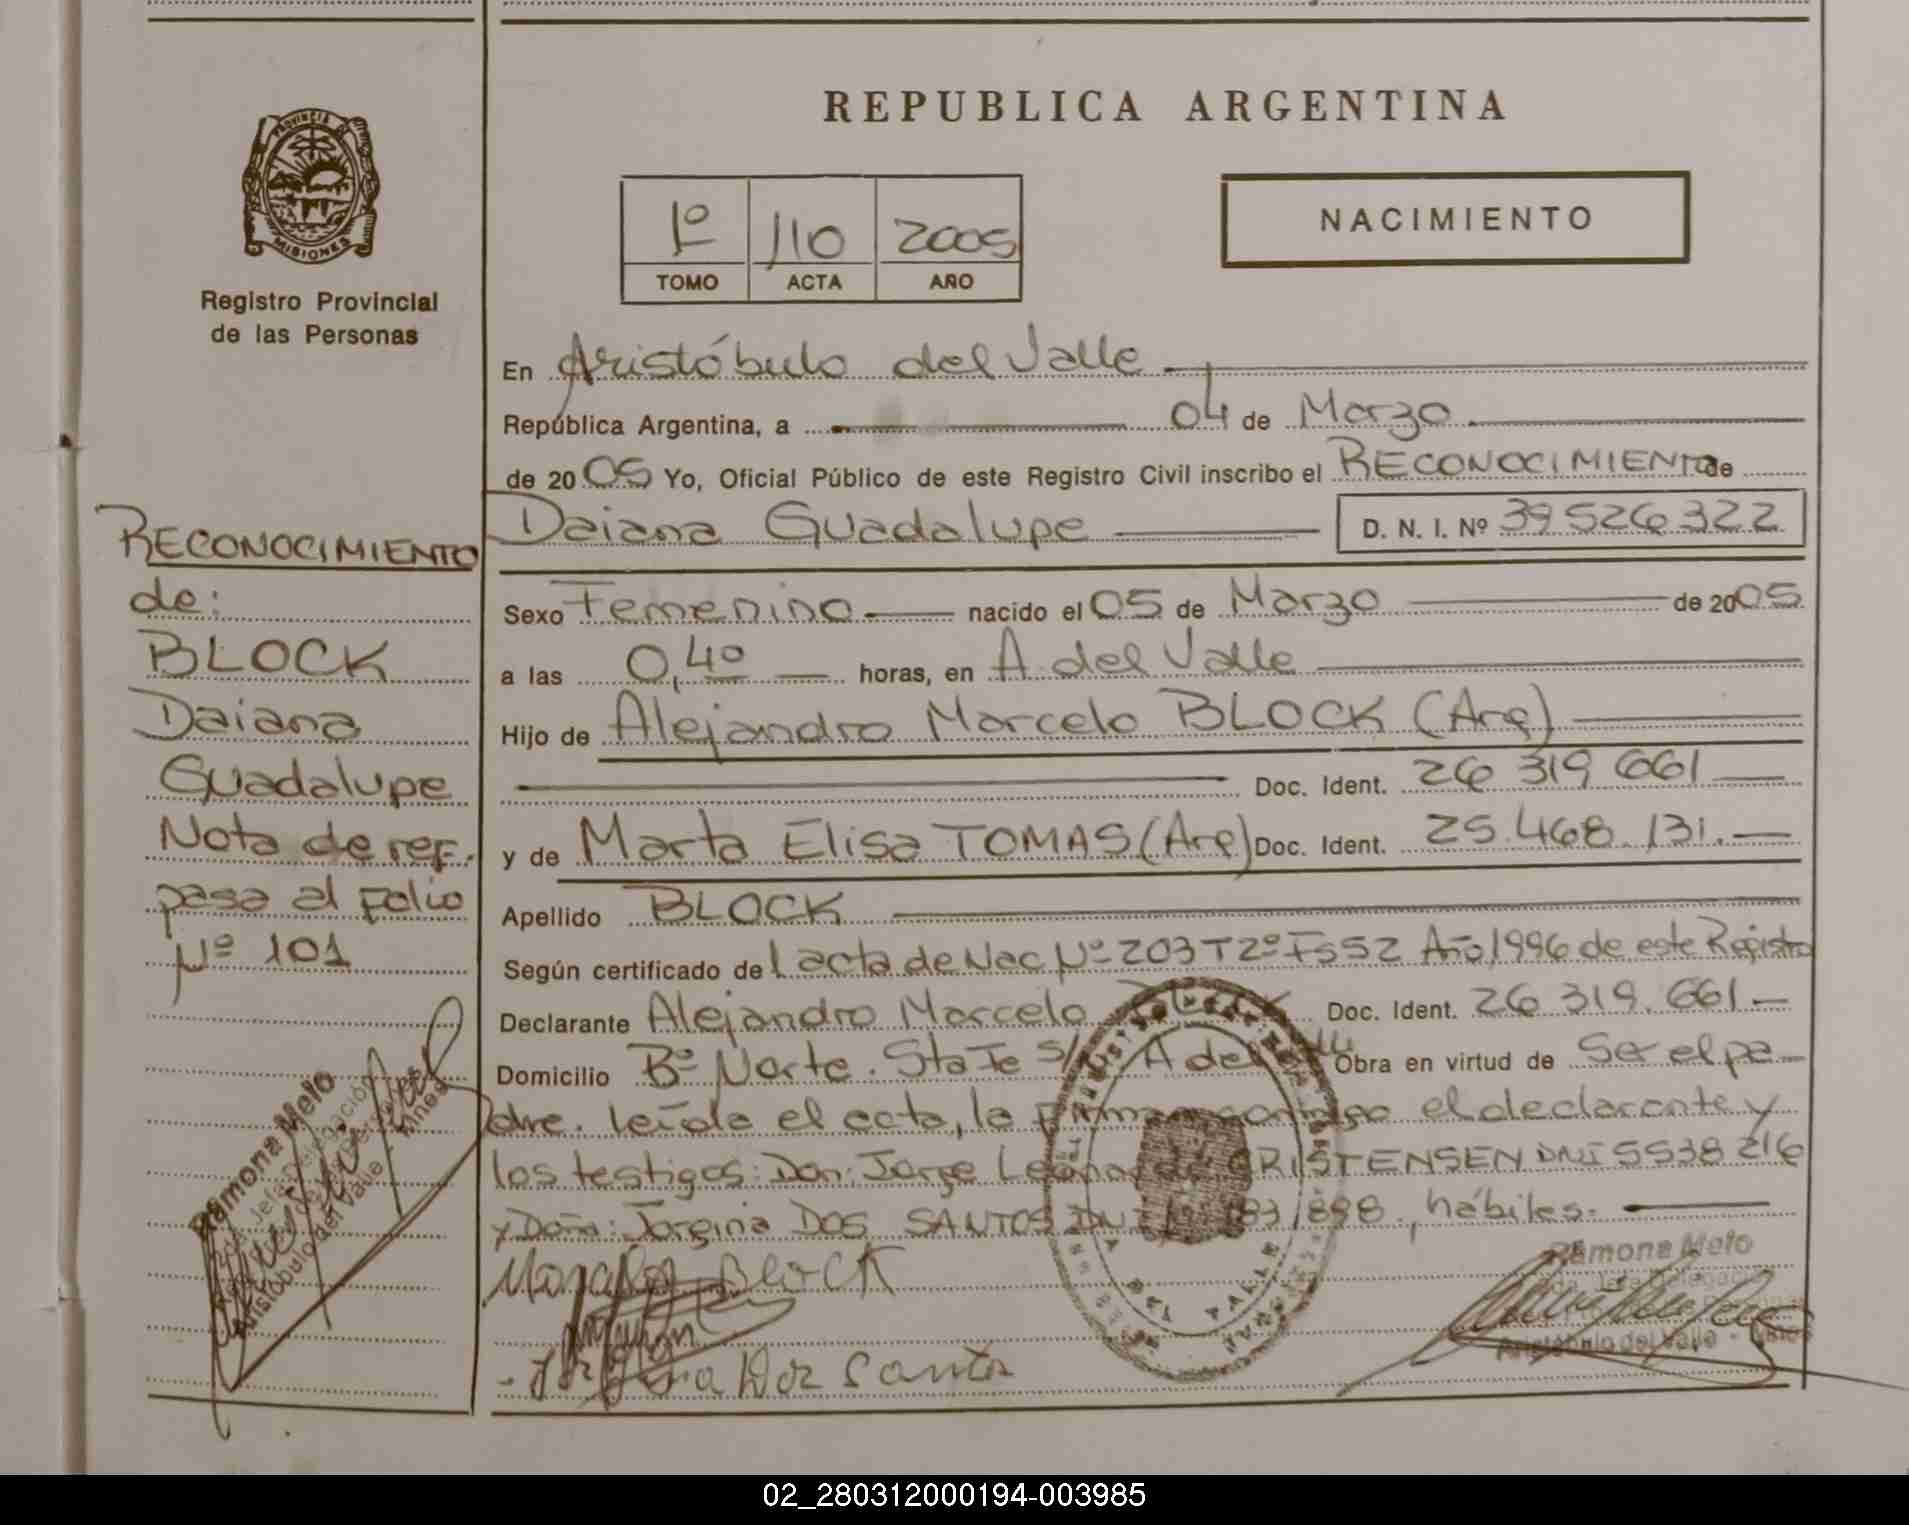 PROVINCIA DE
MISIONES
Registro Provincial
de las Personas
RECONOCIMIENTO
de:
BLOCK
Daiana
Guadalupe
Nota de ref.
pasa al Folio
Nº 101
Ramona Melo
Aristóbulo del Valle - Mnes
REPUBLICA ARGENTINA
1º 110 2005
TOMO ACTA AÑO
NACIMIENTO
En Aristóbulo del Valle
República Argentina, a 04 de Marzo
de 2005 Yo, Oficial Público de este Registro Civil inscribo el RECONOCIMIENTO de
Daiana Guadalupe D. N. I. Nº 39526322
Sexo Femenino nacido el 05 de Marzo de 2005
a las 0,40 horas, en A. del Valle
Hijo de Alejandro Marcelo BLOCK (Arg)
Doc. Ident. 26 319 661
y de Marta Elisa TOMAS (Arg) Doc. Ident. 25.468.131.
Apellido BLOCK
Según certificado de l acta de Nac Nº 203 T2º Fs 52 Año 1996 de este Registro
Declarante Alejandro Marcelo Doc. Ident. 26 319.661
Domicilio Bº Norte. Sta Fe S/ A del Obra en virtud de Ser el pa-
dre. leída el acta, la firman conmigo el declarante y
los testigos: Don: Jorge CRISTENSEN DNI 5538216
y Doña: Jorgina DOS SANTOS hábiles.
BLOCK
Jorgina Dos Santos
Ramona Melo
Aristóbulo del Valle - Mnes
02_280312000194-003985